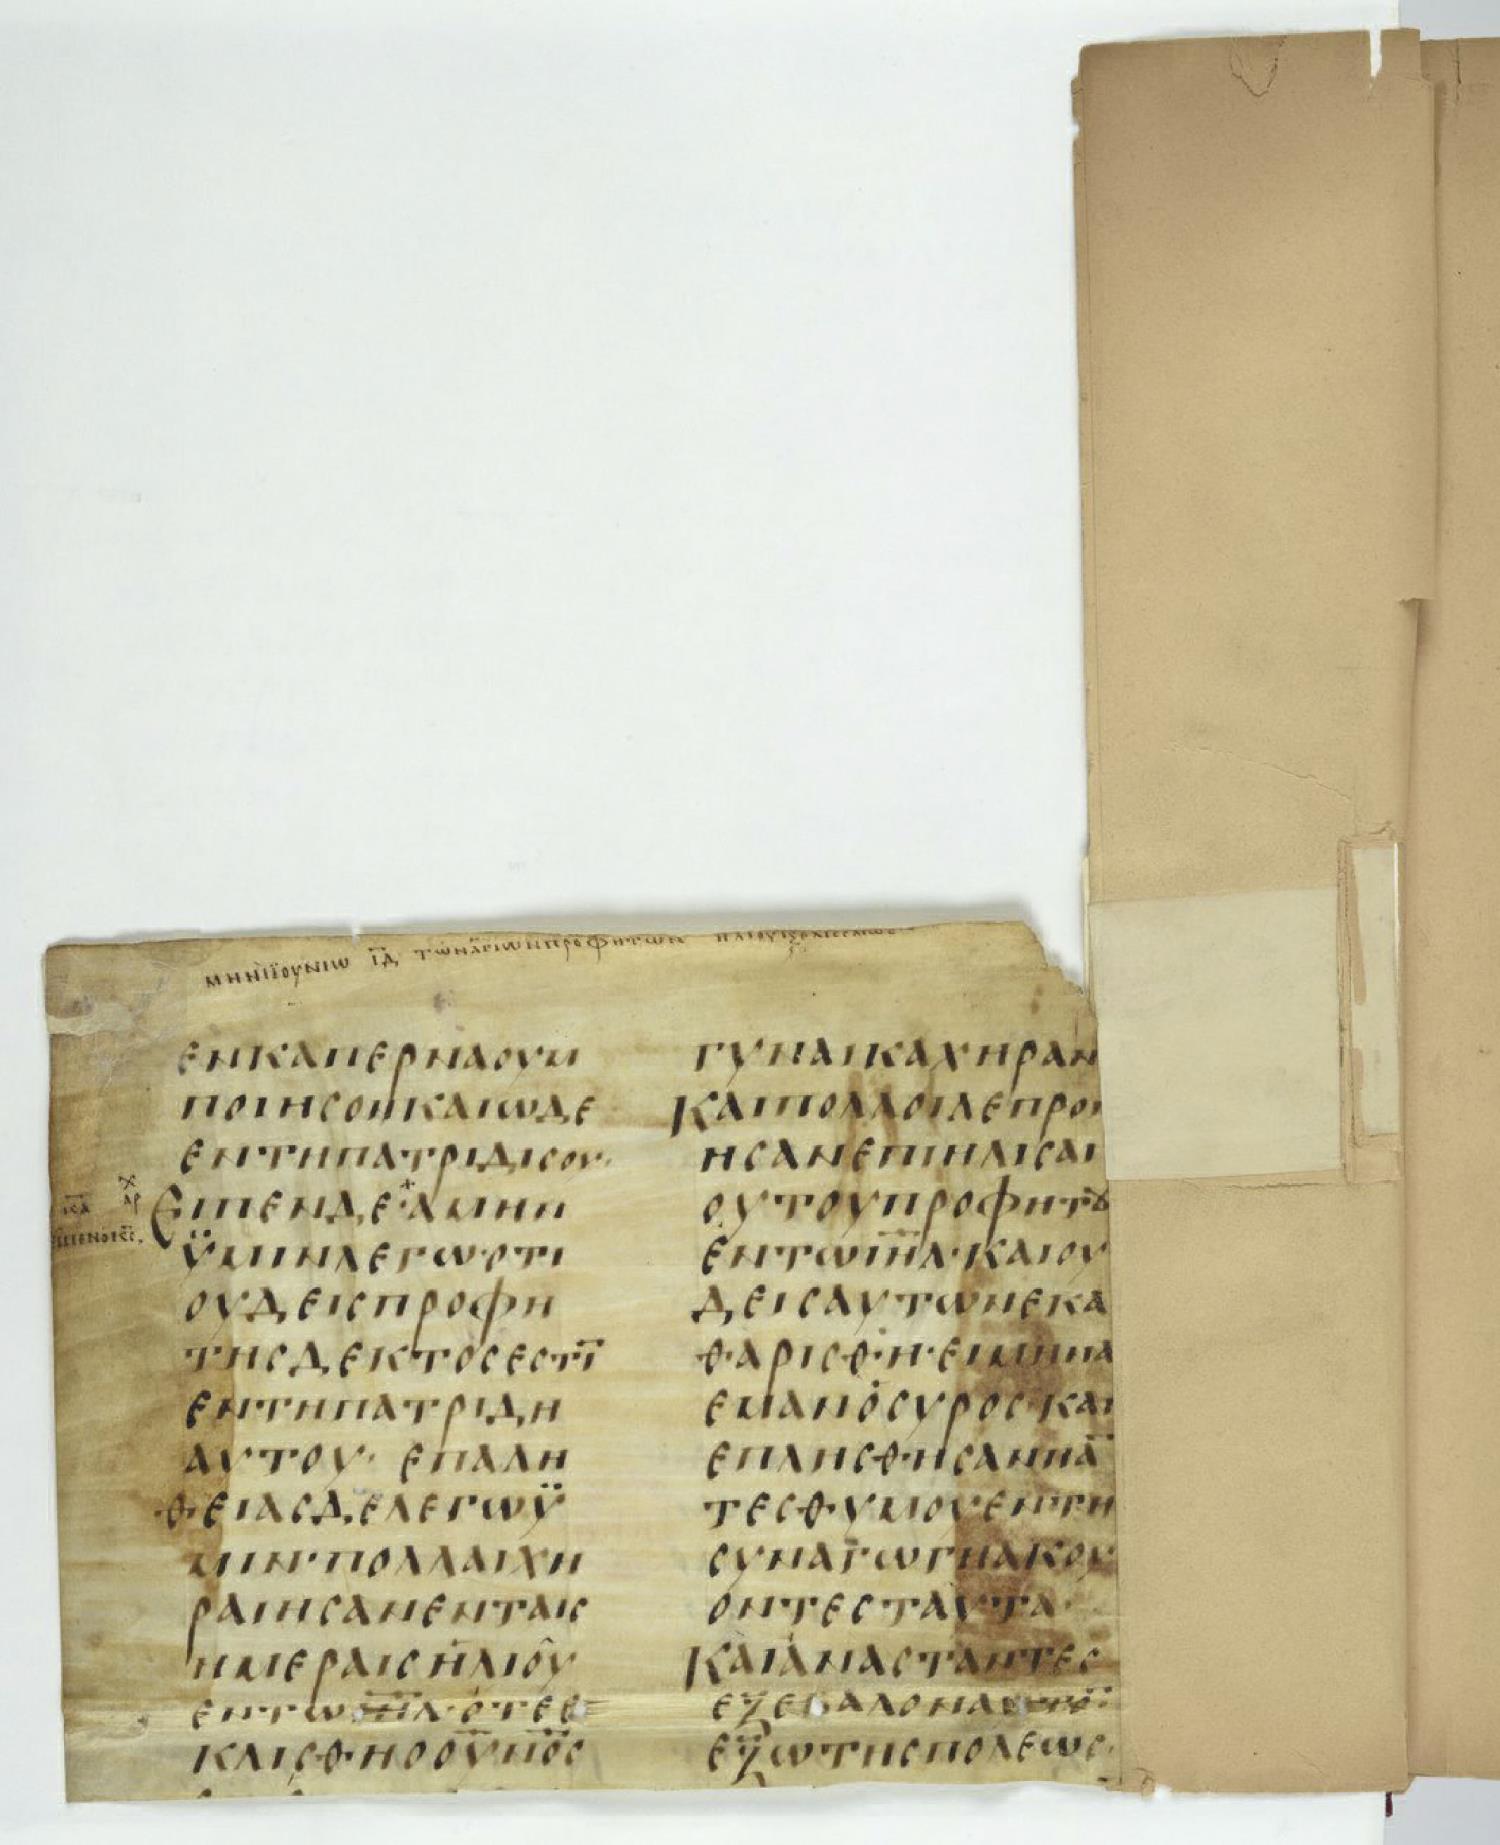 ΜΗΝΙ ΙΟΥΝΙΩ ΙΔ ΤΩΝ ΑΓΙΩΝ ΠΡΟΦΗΤΩΝ
ΕΝΚΑΠΕΡΝΑΟΥΜ
ΠΟΙΗΣΟΝΚΑΙΩΔΕ
ΕΝΤΗΠΑΤΡΙΔΙΣΟΥ·
ΕΙΠΕΝΔΕ·ΑΜΗΝ
ΫΜΙΝΛΕΓΩ·ΟΤΙ
ΟΥΔΕΙΣΠΡΟΦΗ
ΤΗΣΔΕΚΤΟΣΕΣΤΙ̅
ΕΝΤΗΠΑΤΡΙΔΗ
ΑΥΤΟΥ· ΕΠΑΛΗ
ΘΕΙΑΣΔΕΛΕΓΩΫ
ΜΙΝ·ΠΟΛΛΑΙΧΗ
ΡΑΙΗΣΑΝΕΝΤΑΙΣ
ΗΜΕΡΑΙΣΗΛΙΟΥ
ΕΝΤΩΙ̅Η̅Λ·ΟΤΕΕ
ΚΛΙΣΘΗΟΟΥ̅Ν̅Ο̅Σ
ΓΥΝΑΙΚΑΧΗΡΑΝ
ΚΑΙΠΟΛΛΟΙΛΕΠΡΟΙ
ΗΣΑΝΕΠΙΗΛΙΣΑΙ
ΟΥΤΟΥΠΡΟΦΗΤȢ
ΕΝΤΩΙ̅Η̅Λ·ΚΑΙΟΥ
ΔΕΙΣΑΥΤΩΝΕΚΑ
ΘΑΡΙΣΘΗ·ΕΙΜΗΝΑ
ΕΜΑΝΟΣΥΡΟΣ·ΚΑΙ
ΕΠΛΗΣΘΗΣΑΝΠΑ̅
ΤΕΣΘΥΜΟΥΕΝΤΗ
ΣΥΝΑΓΩΓΗΑΚΟΥ
ΟΝΤΕΣΤΑΥΤΑ·
ΚΑΙΑΝΑΣΤΑΝΤΕΣ
ΕΞΕΒΑΛΟΝΑΥΤΟ̅
ΕΞΩΤΗΣΠΟΛΕΩΣ·